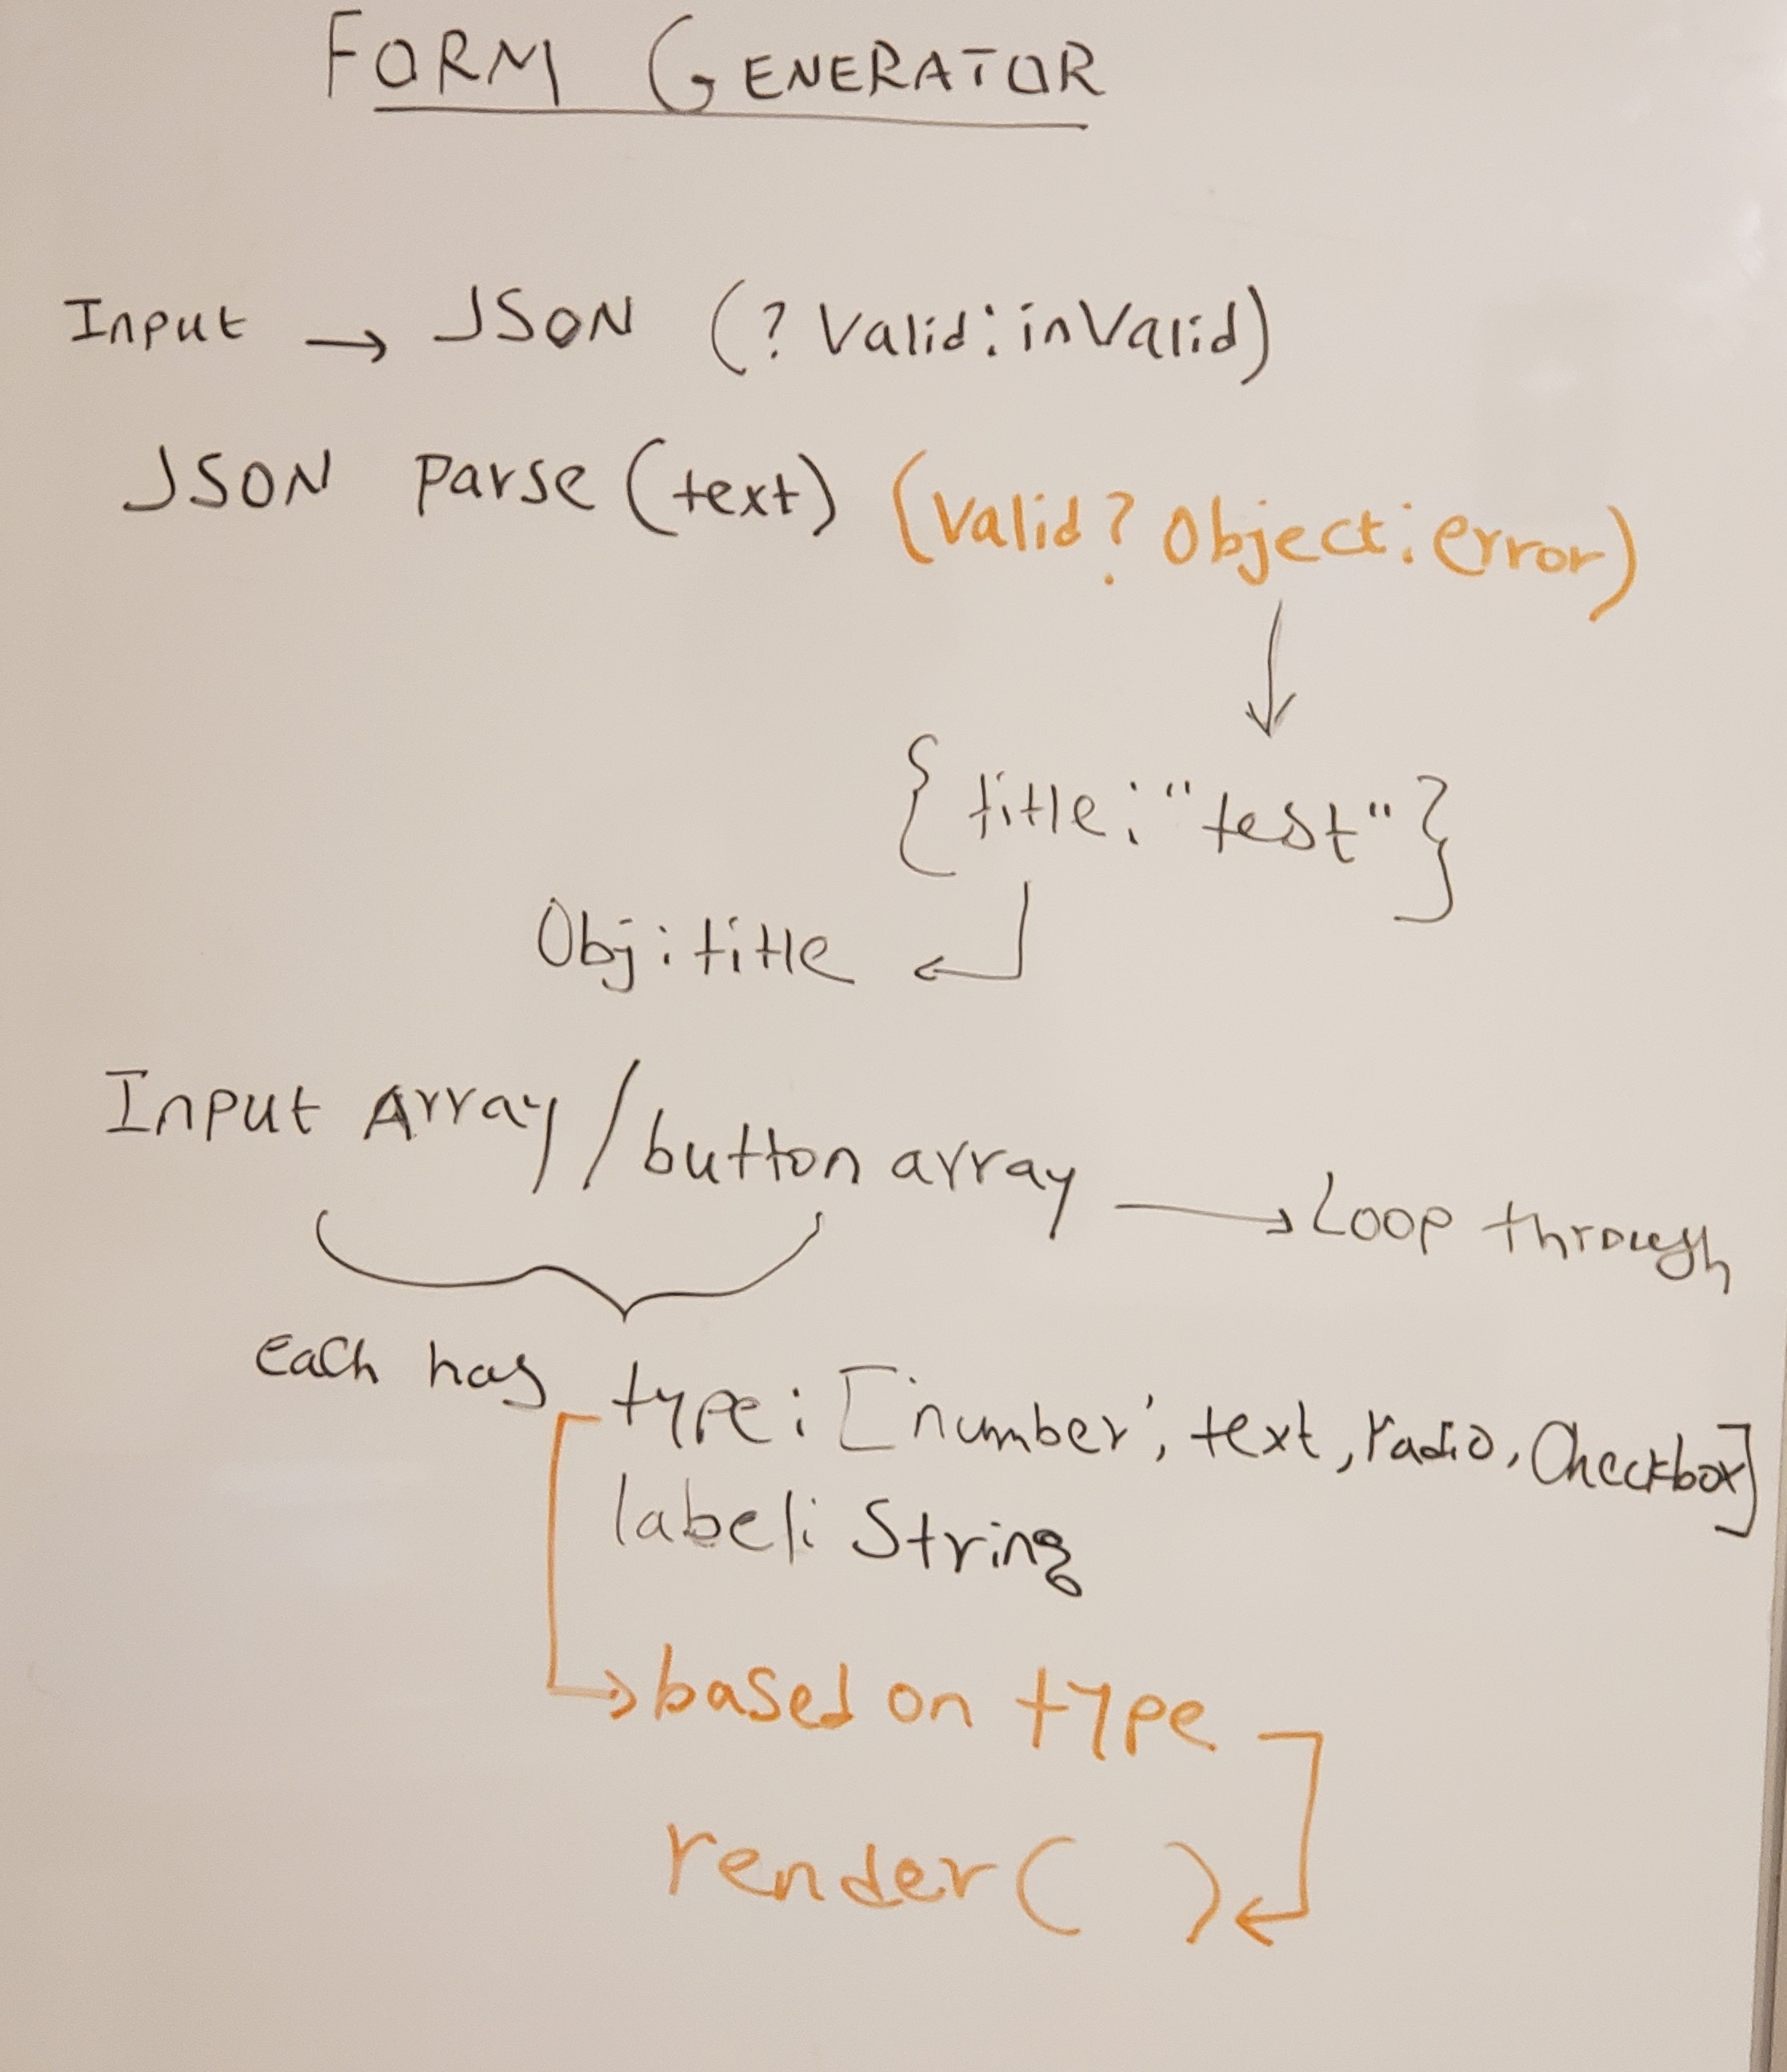 FORM GENERATOR
Input → JSON (? Valid : inValid)
JSON Parse (text) (Valid? Object : error)
{ title : "test" }
Obj : title
Input Array / button array → Loop through
each has type : ['number', text, radio, Checkbox]
label : String
based on type
render ( )